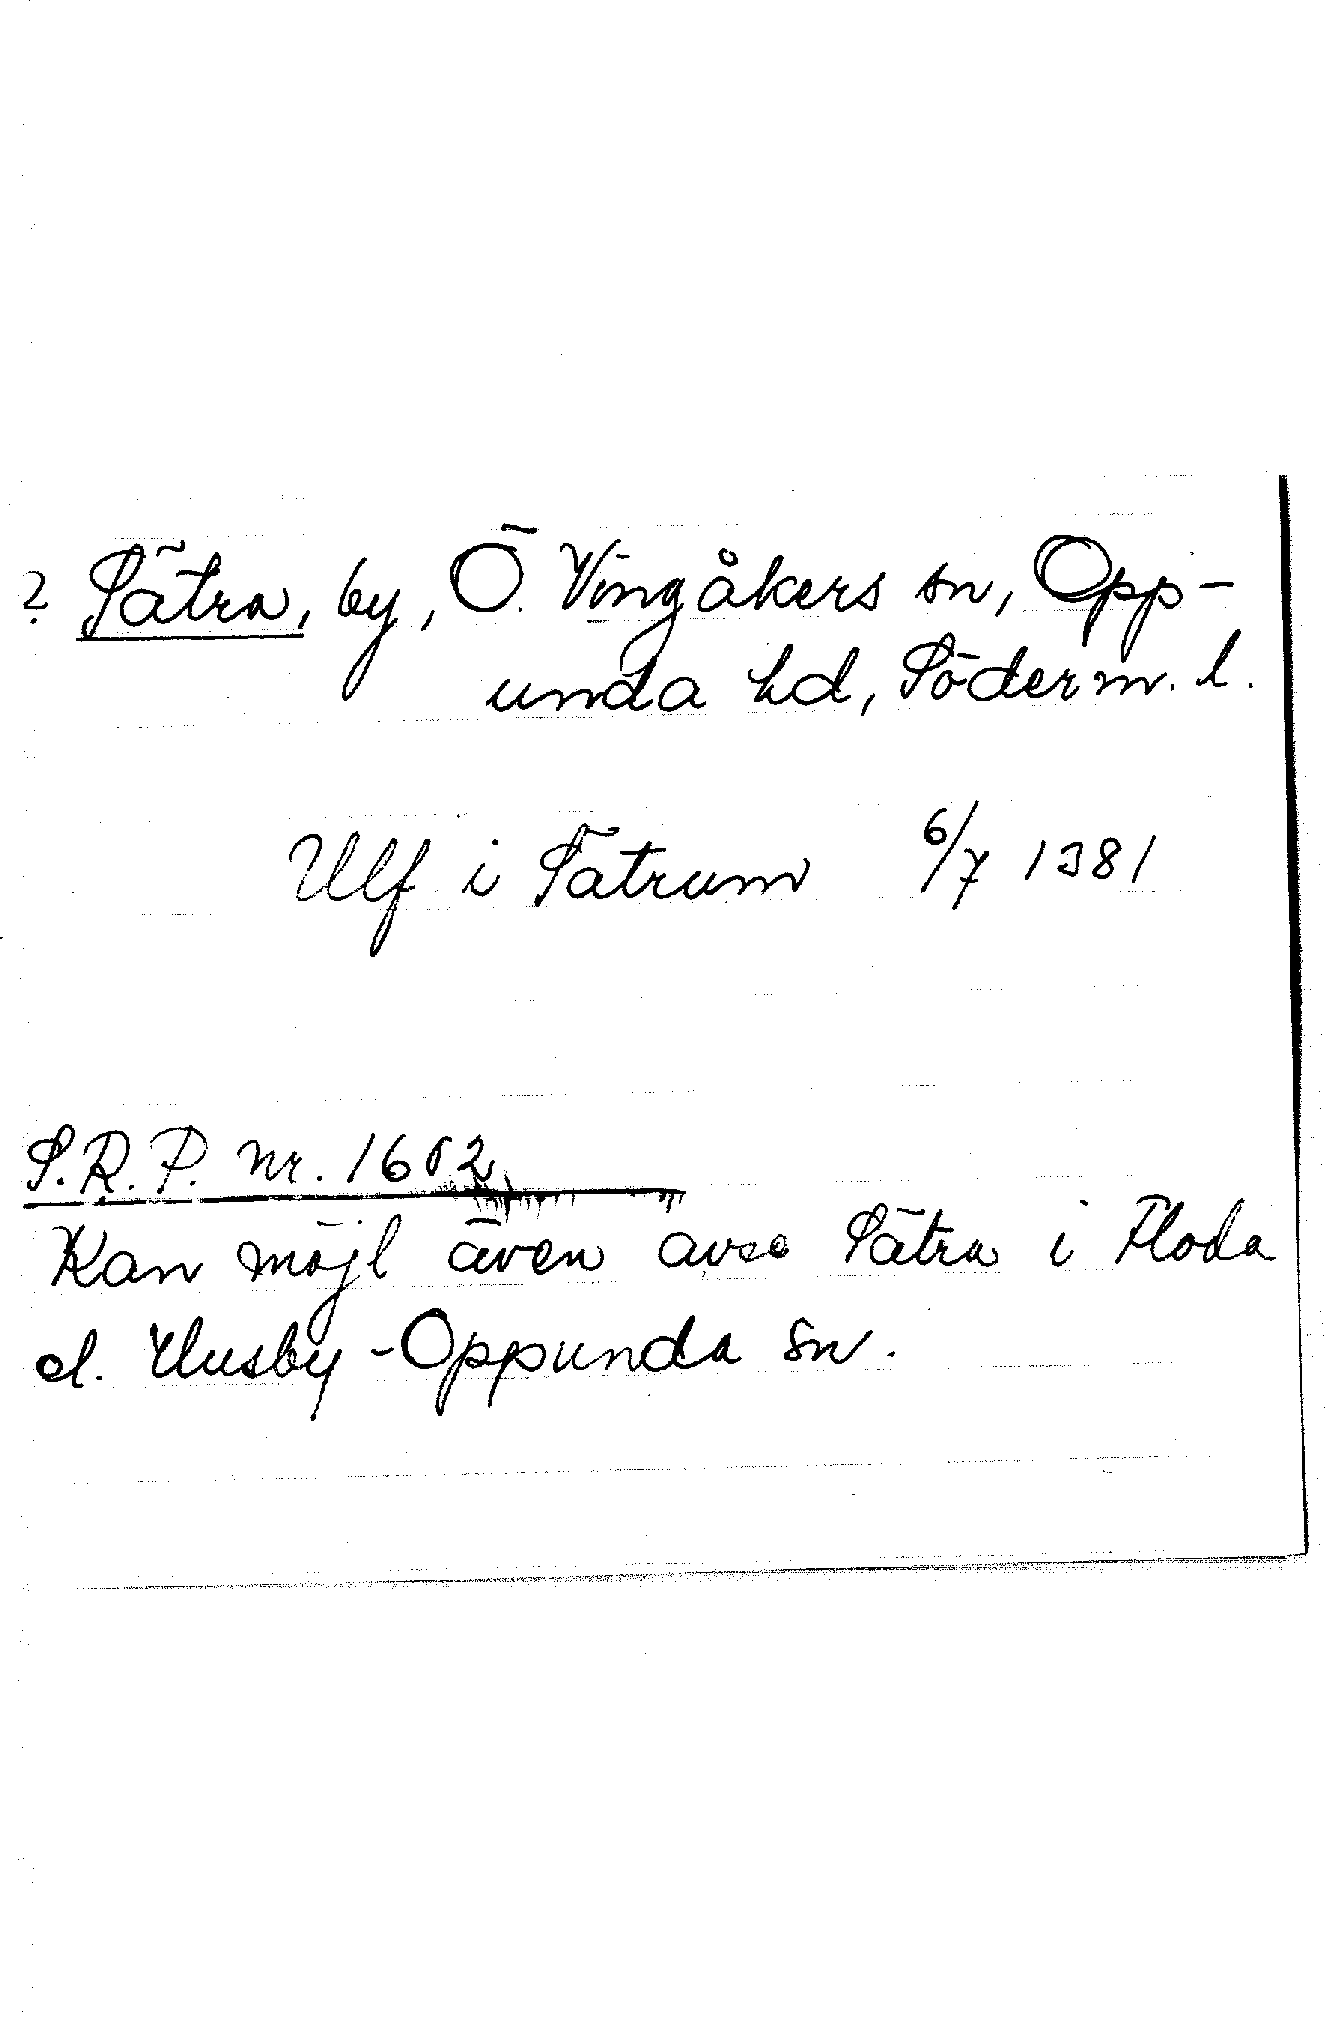 ? Sätra, by, Ö. Vingåkers sn, Opp-
unda hd, Söderm. l.
Ulf i Satrum 6/7 1381
S.R.P. nr. 1602
Kan möjl även avse Sätra i Floda
el. Husby-Oppunda sn.